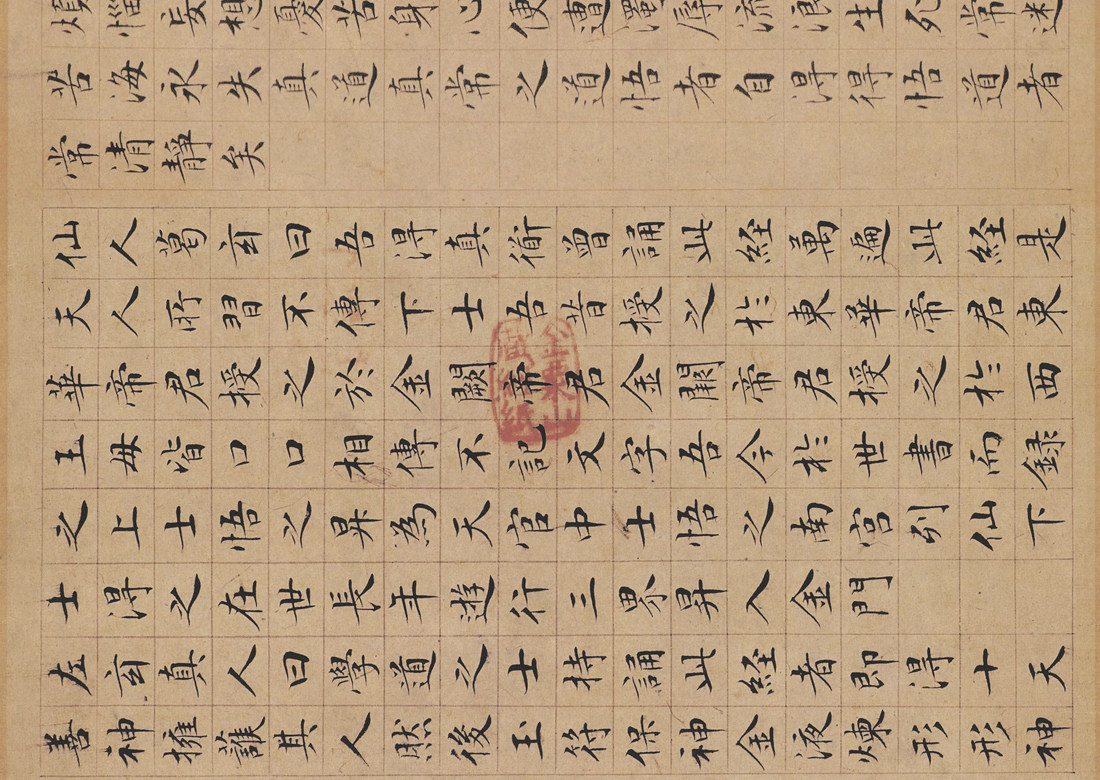 煩惱妄想憂苦身心便遭濁辱流浪生死常迷
苦海永失真道真常之道悟者自得得悟道者
常清靜矣
仙人葛玄曰吾得真衜曾誦此経萬遍此経是
天人所習不傳下士吾昔授之於東華帝君東
華帝君授之於金闕帝君金闕帝君授之於西
王母皆口口相傳不記文字吾今於世書而録
之上士悟之昇為天官中士悟之南宮列仙下
士得之在世長年遊行三界昇入金門
左玄真人曰學道之士持誦此経者即得十天
善神擁護其人然後玉符保神金液煉形形神
金粟山藏經紙